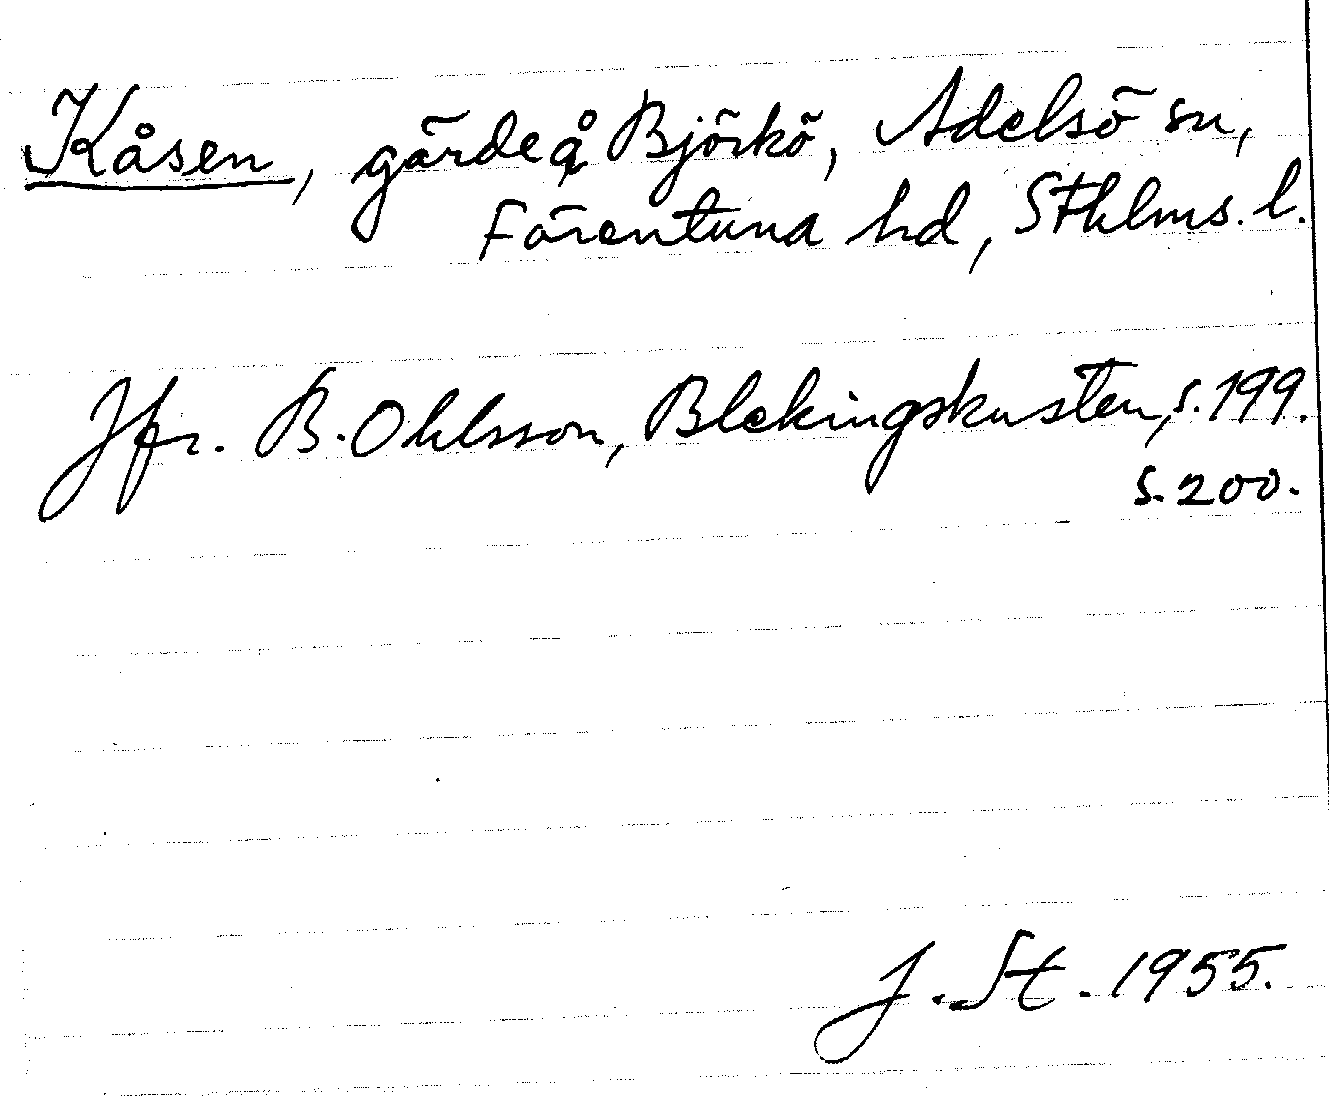 Kåsen, gärde å Björkö, Adelsö sn,
Färentuna hd, Sthlms. l.
Jfr. B. Ohlsson, Blekingskusten, s. 199.
s. 200.
J. St. 1955.